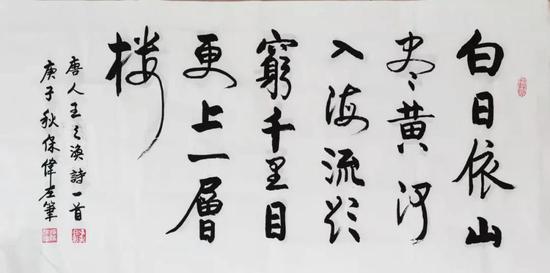 白日依山
尽黄河
入海流欲
窮千里目
更上一層
楼
唐人王之渙詩一首
庚子秋保偉左筆